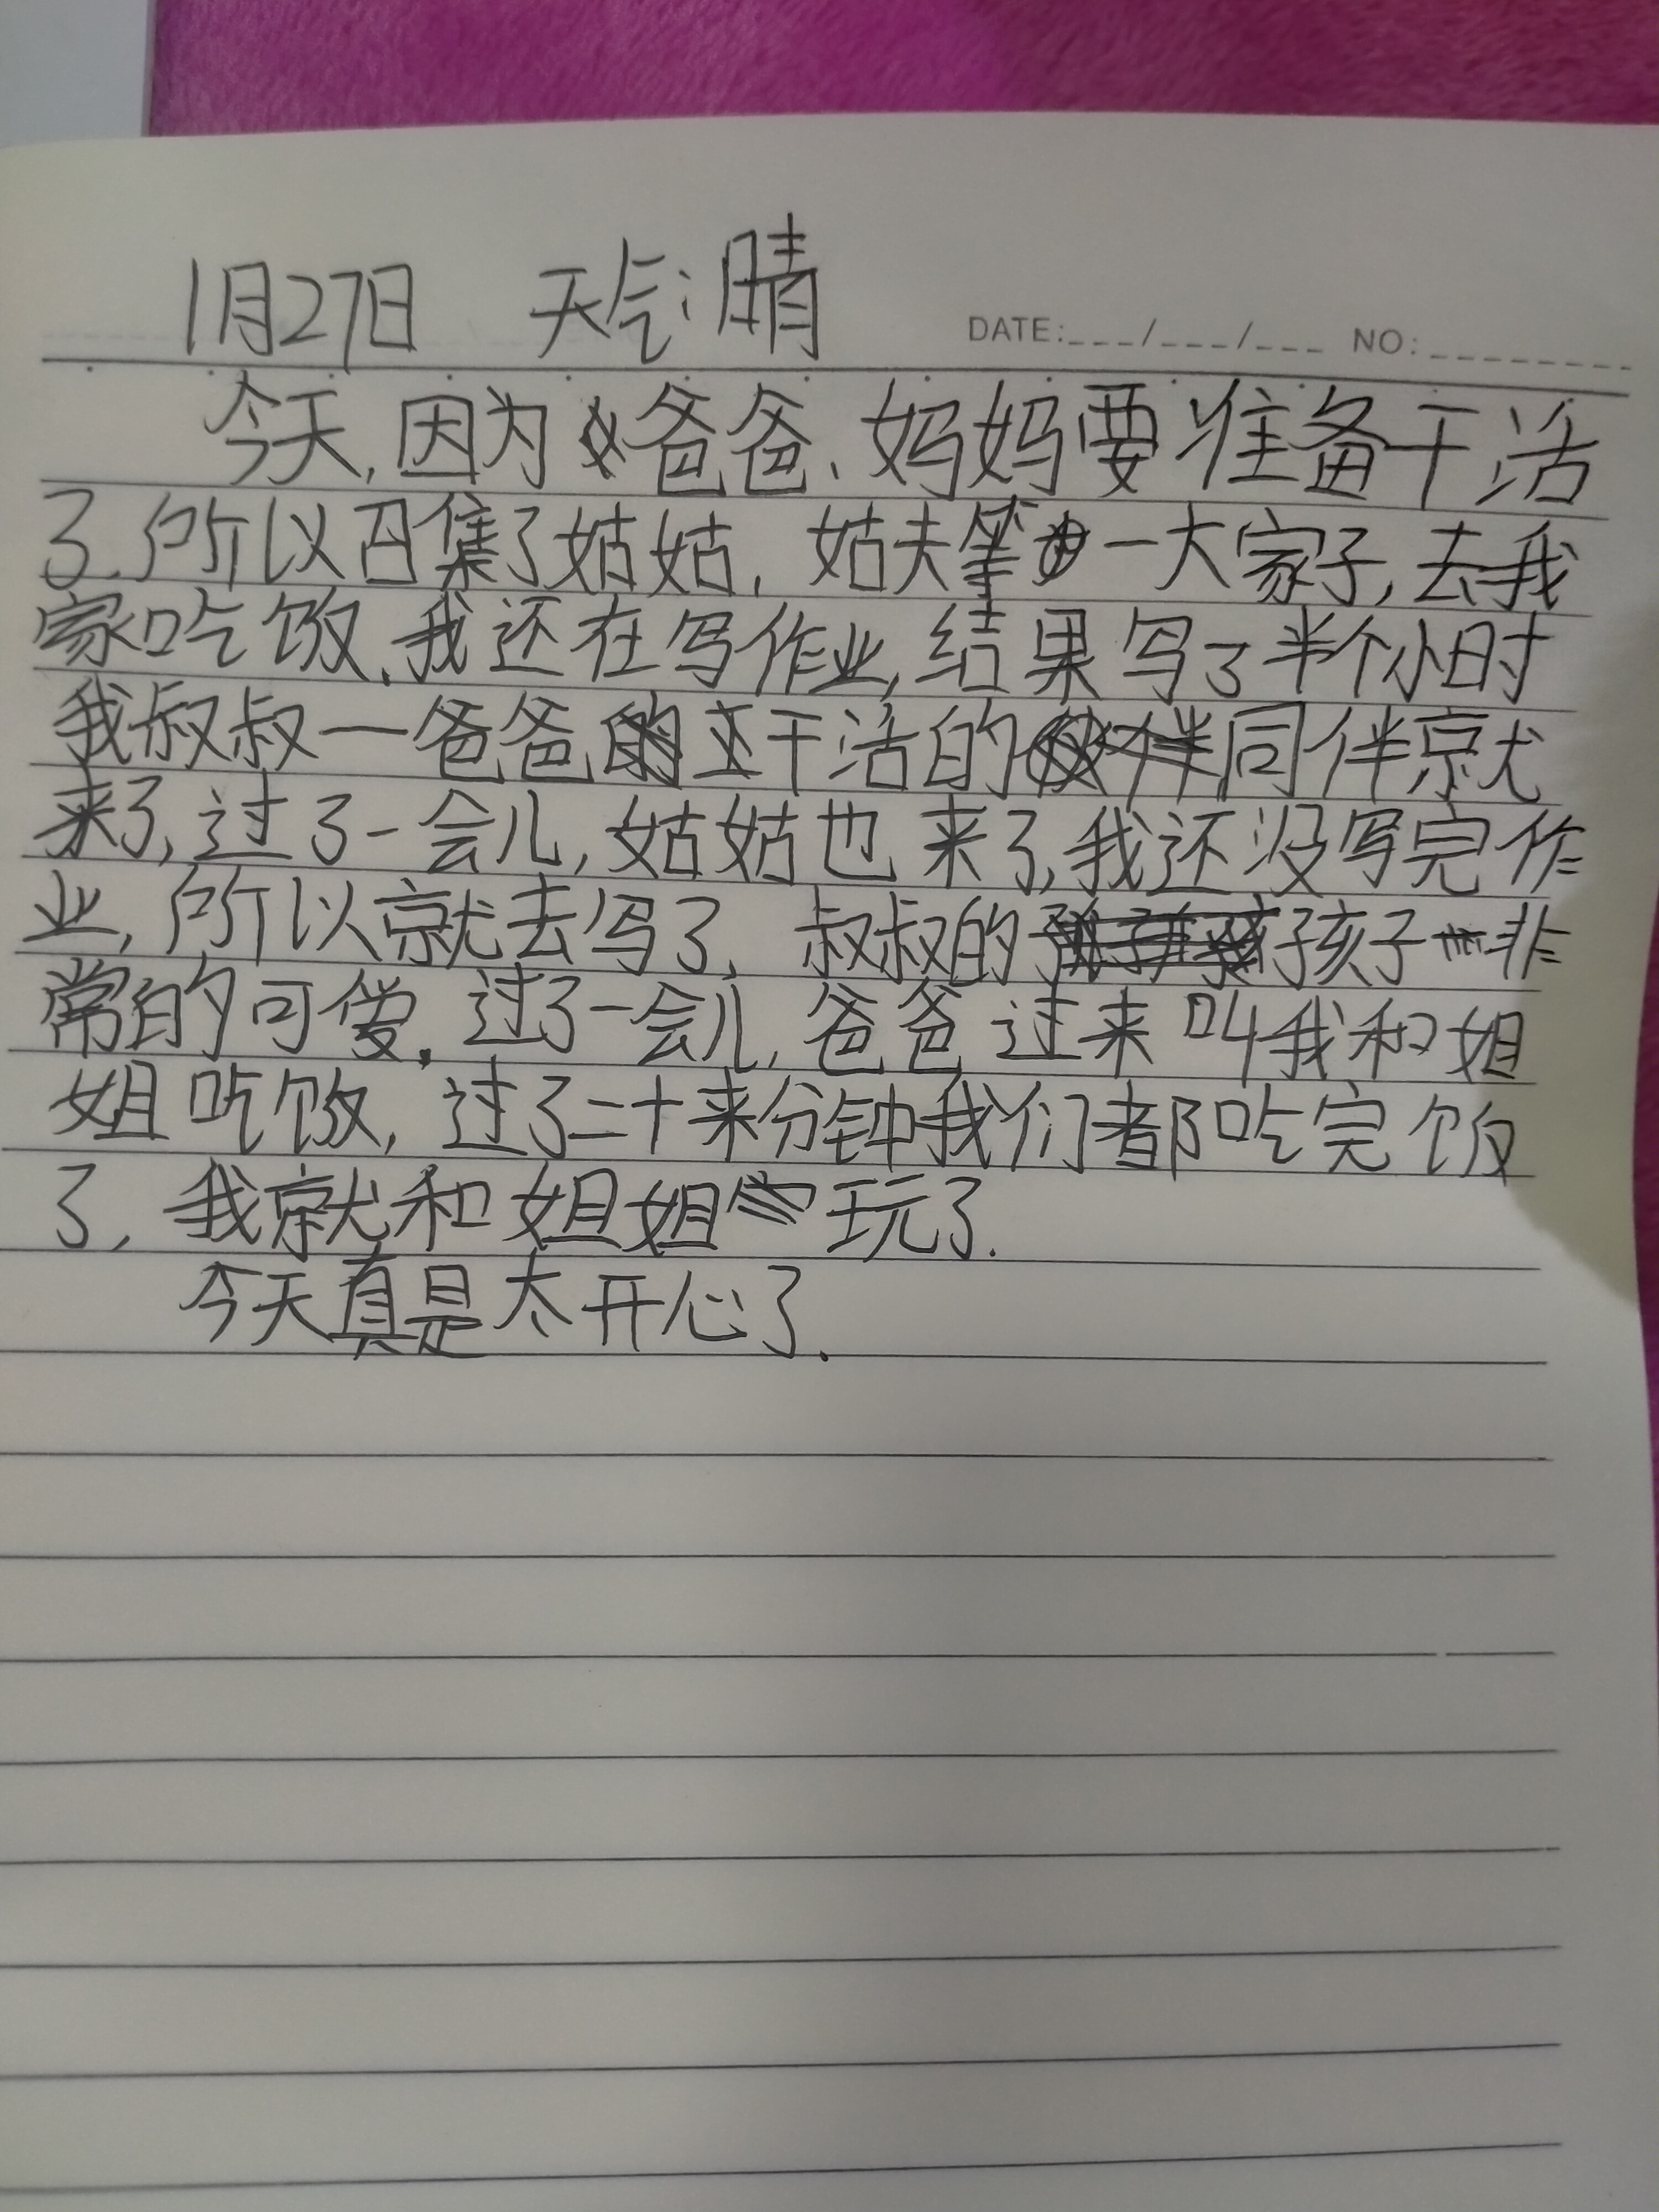 1月27日 天气:晴
DATE:___/___/___ NO:________
今天,因为爸爸、妈妈要准备干活
了.所以召集了姑姑,姑夫等一大家子,去我
家吃饭.我还在写作业,结果写了半个小时
我叔叔一爸爸干活的同伴就
来了,过了一会儿,姑姑也来了,我还没写完作
业,所以就去写了,叔叔的孩子非
常的可爱.过了一会儿,爸爸过来叫我和姐
姐吃饭,过了二十来分钟我们都吃完饭
了,我就和姐姐玩了.
今天真是太开心了.